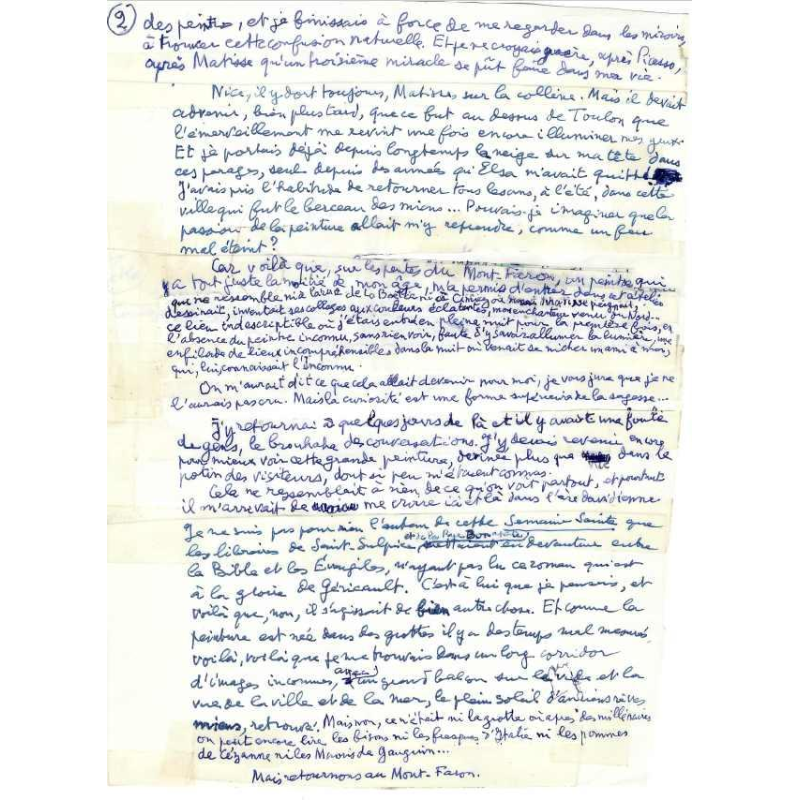 2
des peintres, et je finissais à force de me regarder dans les miroirs,
à trouver cette confusion naturelle. Et je ne croyais guère, après Picasso,
après Matisse qu'un troisième miracle se pût faire dans ma vie.
Nice, il y dort toujours, Matisse sur la colline. Mais il devait
advenir, bien plus tard, que ce fut au dessus de Toulon que
l'émerveillement me revint une fois encore illuminer mes yeux.
Et je portais déjà depuis longtemps la neige sur ma tête dans
ces parages, seul depuis des années qu'Elsa m'avait quitté
J'avais pris l'habitude de retourner tous les ans, à l'été, dans cette
ville qui fut le berceau des miens... Pouvais-je imaginer que la
passion de la peinture allait m'y reprendre, comme un feu
mal éteint?
Car voilà que, sur les pentes du Mont-Faron, un peintre qui
a tout juste la moitié de mon âge, m'a permis d'entrer dans cet atelier
que ne ressemble ni à la rue de la Boétie ni à Cimiez où Matisse peignait,
dessinait, inventait ses collages aux couleurs éclatantes, mon enchanteur venu du Nord...
ce lieu indescriptible où j'étais entré en pleine nuit pour la première fois, en
l'absence du peintre inconnu, sans rien voir, faute d'y savoir allumer la lumière, une
enfilade de lieux incompréhensibles dans la nuit où venait se nicher un ami à moi,
qui, lui, connaissait l'Inconnu.
On m'aurait dit ce que cela allait devenir pour moi, je vous jure que je ne
l'aurais pas cru. Mais la curiosité est une forme supérieure de la sagesse...
J'y retournai à quelques jours de là et il y avait une foule
de gens, le brouhaha des conversations. J'y devais revenir encore
pour mieux voir cette grande peinture, devinée plus que dans le
potin des visiteurs, dont si peu m'étaient connus.
Cela ne ressemblait à rien, de ce qu'on voit partout, et pourtant
il m'arrivait de me croire ici et là dans l'ère davidienne
Je ne suis pas pour rien l'auteur de cette Semaine Sainte que
les libraires de Saint-Sulpice, et de la rue Bonaparte, mettaient en devanture entre
la Bible et les Évangiles, n'ayant pas lu ce roman qui est
à la gloire de Géricault. C'est à lui que je pensais, et
voilà que, non, il s'agissait de bien autre chose. Et comme la
peinture est née dans des grottes il y a des temps mal mesurés
voilà, voilà que je me trouvais dans un long corridor
d'images inconnues, avec un grand balcon sur le vide et la
vue de la ville et de la mer, le plein soleil d'anciens rêves
miens, retrouvé. Mais non, ce n'était ni la grotte où après des millénaires
on peut encore lire les bisons ni les fresques d'Italie ni les pommes
de Cézanne ni les Maoris de Gauguin...
Mais retournons au Mont-Faron.